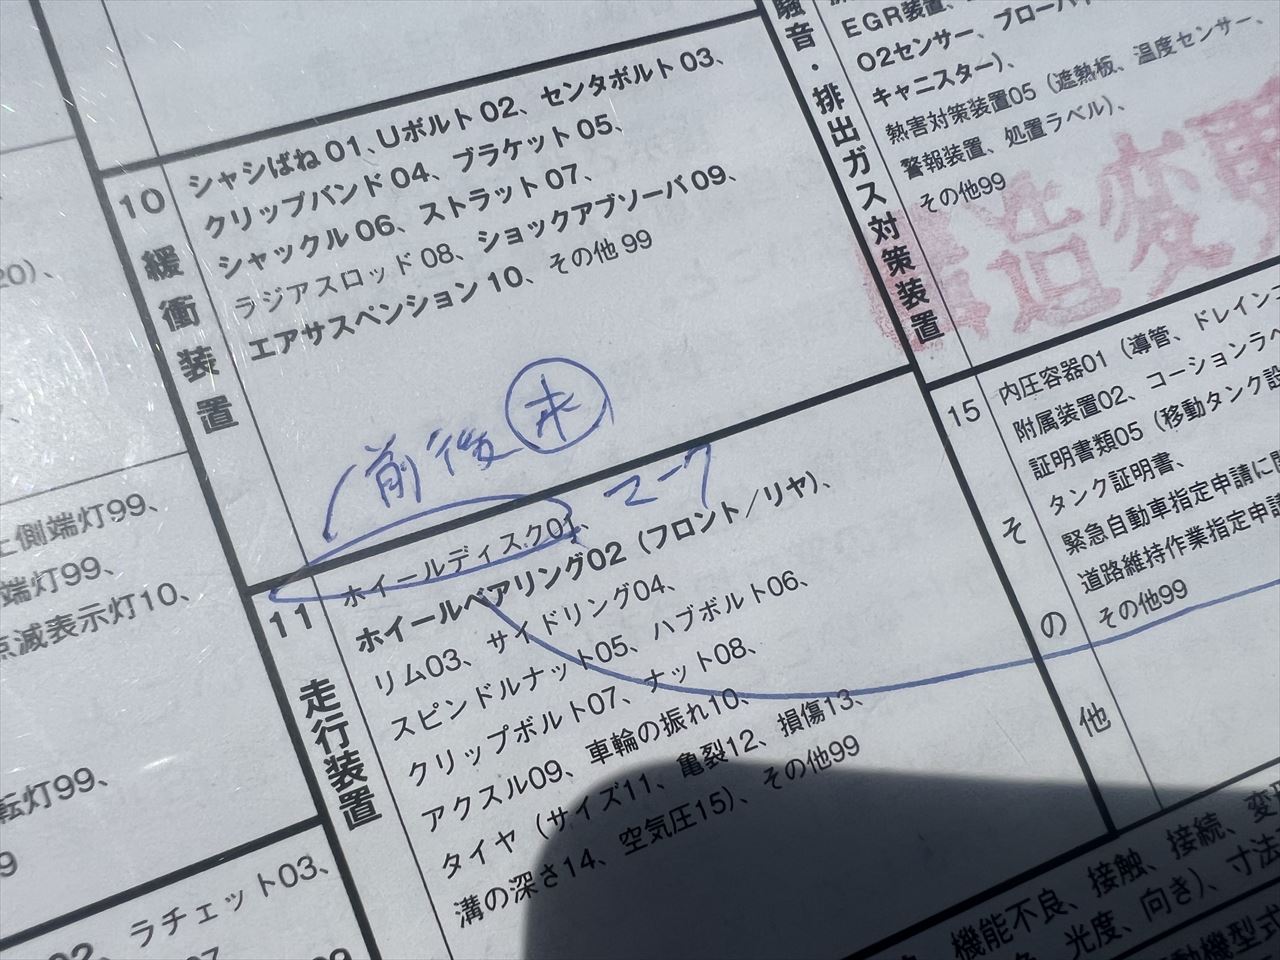 20)、
上側端灯99、
端灯99、
点滅表示灯10、
転灯99、
9
ラチェット03、
02、
07
99
10
緩衝装置
シャシばね01、Uボルト02、センタボルト03、
クリップバンド04、ブラケット05、
シャックル06、ストラット07、
ラジアスロッド08、ショックアブソーバ09、
エアサスペンション10、その他99
前後
マーク
11
走行装置
ホイールディスク01、
ホイールベアリング02（フロント／リヤ）、
リム03、サイドリング04、
スピンドルナット05、ハブボルト06、
クリップボルト07、ナット08、
アクスル09、車輪の振れ10、
タイヤ（サイズ11、亀裂12、損傷13、
溝の深さ14、空気圧15）、その他99
騒音・排出ガス対策装置
EGR装置、
O2センサー、ブローバイ
キャニスター）、
熱害対策装置05（遮熱板、温度センサー、
警報装置、処置ラベル）、
その他99
造変更
15
その他
内圧容器01（導管、ドレインコ
附属装置02、コーションラベ
証明書類05（移動タンク設
タンク証明書、
緊急自動車指定申請に関
道路維持作業指定申請
その他99
機能不良、接触、接続、変形
光度、向き）、寸法
動機型式